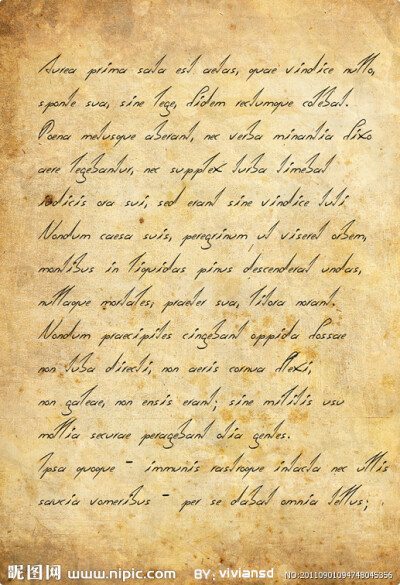 Aurea prima sata est aetas, quae vindice nullo,
sponte sua, sine lege, fidem rectumque colebat.
Poena metusque aberant, nec verba minantia fixo
aere legebantur, nec supplex turba timebat
iudicis ora sui, sed erant sine vindice tuti
Nondum caesa suis, peregrinum ut viseret orbem,
montibus in liquidas pinus descenderat undas,
nullaque mortales, praeter sua, litora norant.
Nondum praecipites cingebant oppida fossae
non tuba directi, non aeris cornua flexi,
non galeae, non ensis erant; sine militis usu
mollia securae peragebant otia gentes.
Ipsa quoque – immunis rastroque intacta nec ullis
saucia vomeribus – per se dabat omnia tellus;
昵图网 www.nipic.com BY: viviansd NO:20110901094748045356